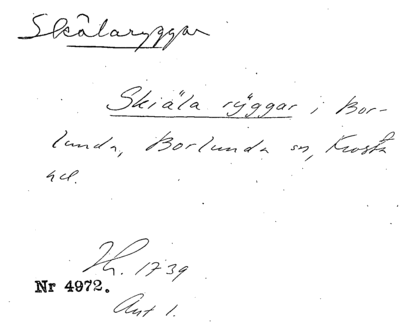 Skälaryggar
Skiäla ryggar i Bor-
lunda, Borlunda sn, Frosta
hd.
Th. 1739
Nr 4972.
Ant 1.